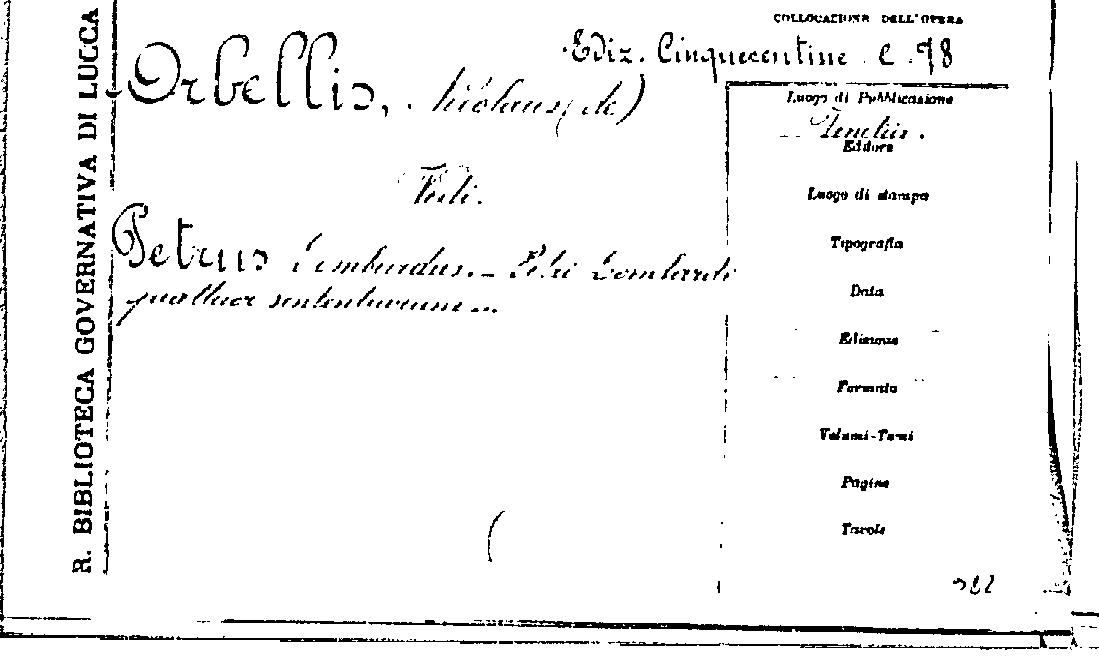 R. BIBLIOTECA GOVERNATIVA DI LUCCA
COLLOCAZIONE DELL'OPERA
Ediz. Cinquecentine C. 98
Orbellis, Nicolaus (de)
Luogo di Pubblicazione
Venetiis.
Editore
Vedi.
Luogo di stampa
Petrus Lombardus. - Petri Lombardi
Tipografia
quattuor sententiarum...
Data
Edizione
Formato
Volumi-Tomi
Pagine
Tavole